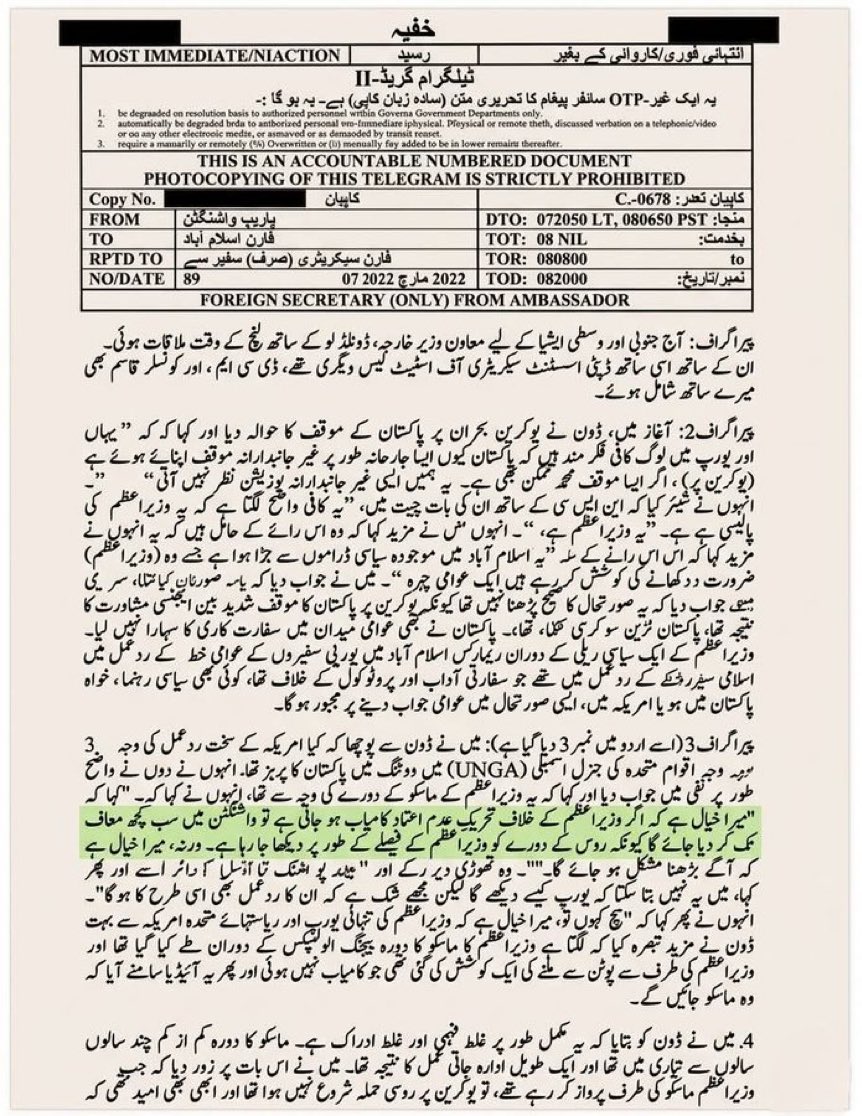 خفیہ
MOST IMMEDIATE/NIACTION رسید انتہائی فوری/کاروائی کے بغیر
ٹیلگرام گریڈ-II
یہ ایک غیر-OTP سائفر پیغام کا تحریری متن (سادہ زبان کاپی) ہے- یہ ہو گا :-
1. be degraded on resolution basis to authorized personnel wrtbin Governa Government Departments only.
2. automatically be degraded brda to anthorized personal vm-fnmmediare iphysical. Pfeysical or remote theth, discussed verbation on a telephonic/video
or oo any other electrooic medte, or asmaved or as demaoded by transit reaset.
3. require a mamarily or remotely (%) Overwritten or (li) menually fay added to be in lower remaint thereafter.
THIS IS AN ACCOUNTABLE NUMBERED DOCUMENT
PHOTOCOPYING OF THIS TELEGRAM IS STRICTLY PROHIBITED
Copy No. کاپیان کاپیان تعدر: C.-0678
FROM پاریپ واشنگٹن DTO: 072050 LT, 080650 PST منجا:
TO فارن اسلام آباد TOT: 08 NIL بخدمت:
RPTD TO فارن سیکریٹری (صرف) سفیر سے TOR: 080800 to
NO/DATE 89 07 2022 مارچ 2022 TOD: 082000 نمبر/تاریخ:
FOREIGN SECRETARY (ONLY) FROM AMBASSADOR
پیراگراف: آج جنوبی اور وسطی ایشیا کے لیے معاون وزیر خارجہ، ڈونلڈ لو کے ساتھ لنچ کے وقت ملاقات ہوئی۔
ان کے ساتھ اسی ساتھ ڈپٹی اسسٹنٹ سیکریٹری آف اسٹیٹ لیس ویگری تھے، ڈی سی ایم، اور کونسلر قاسم بھی
میرے ساتھ شامل ہوئے۔
پیراگراف2: آغاز میں، ڈون نے یوکرین بحران پر پاکستان کے موقف کا حوالہ دیا اور کہا کہ "یہاں
اور یورپ میں لوگ کافی فکر مند ہیں کہ پاکستان کیوں ایسا جارحانہ طور پر غیر جانبدارانہ موقف اپنائے ہوئے ہے
(یوکرین پر)، اگر ایسا موقف ممکن بھی ہے۔ یہ ہمیں ایسی غیر جانبدارانہ پوزیشن نظر نہیں آتی" "۔
انہوں نے شیئر کیا کہ این ایس سی کے ساتھ ان کی بات چیت میں، "یہ کافی واضح لگتا ہے کہ یہ وزیراعظم کی
پالیسی ہے ہے۔ "یہ وزیراعظم ہے، "۔ انہوں نے مزید کہا کہ وہ اس رائے کے حامل ہیں کہ یہ انہوں نے
مزید کہا کہ اس اس رانے کے "یہ اسلام آباد میں موجودہ سیاسی ڈراموں سے جڑا ہوا ہے جسے وہ (وزیراعظم)
ضرورت دکھانے کی کوشش کر رہے ہیں ایک عوامی چہرہ "۔ میں نے جواب دیا کہ
جواب دیا کہ یہ صورتحال کا صحیح پڑھنا نہیں تھا کیونکہ یوکرین پر پاکستان کا موقف شدید بین ایجنسی مشاورت کا
نتیجہ تھا، پاکستان ٹرین سو کرسی تھا،۔ پاکستان نے کبھی عوامی میدان میں سفارت کاری کا سہارا نہیں لیا۔
وزیراعظم کے ایک سیاسی ریلی کے دوران ریمارکس اسلام آباد میں یورپی سفیروں کے عوامی خط کے ردعمل میں
اسلامی کے ردعمل میں تھے جو سفارتی آداب اور پروٹوکول کے خلاف تھا، کوئی بھی سیاسی رہنما، خواہ
پاکستان میں ہو یا امریکہ میں، ایسی صورتحال میں عوامی جواب دینے پر مجبور ہو گا۔
پیراگراف3(اسے اردو میں نمبر 3 دیا گیا ہے): میں نے ڈون سے پوچھا کہ کیا امریکہ کے سخت ردعمل کی وجہ 3
وجہ اقوام متحدہ کی جنرل اسمبلی (UNGA) میں ووٹنگ میں پاکستان کا پرہز تھا۔ انہوں نے دوں نے واضح
طور پر نفی میں جواب دیا اور کہا کہ یہ وزیراعظم کے ماسکو کے دورے کی وجہ سے تھا، انہوں نے کہا کہ۔ "کہا کہ
"میرا خیال ہے کہ اگر وزیراعظم کے خلاف تحریک عدم اعتماد کامیاب ہو جاتی ہے تو واشنگٹن میں سب کچھ معاف
تک کر دیا جائے گا کیونکہ روس کے دورے کو وزیراعظم کے فیصلے کے طور پر دیکھا جا رہا ہے۔ ورنہ، میرا خیال ہے
کہ آگے بڑھنا مشکل ہو جائے گا۔""۔ وہ تھوڑی دیر رکے اور " اسے اور پھر
کہا، میں یہ نہیں بتا سکتا کہ یورپ کیسے دیکھے گا لیکن مجھے شک ہے کہ ان کا ردعمل بھی اسی طرح کا ہو گا"۔
انہوں نے پھر کہا کہ "سچ کہوں تو، میرا خیال ہے کہ وزیراعظم کی تنہائی یورپ اور ریاستہائے متحدہ امریکہ سے بہت
ڈون نے مزید تبصرہ کیا کہ لگتا ہے وزیراعظم کا ماسکو کا دورہ بیجنگ الومپکس کے دوران طے کیا گیا تھا اور
وزیراعظم کی طرف سے پوٹن سے ملنے کی ایک کوشش کی گئی تھی جو کامیاب نہیں ہوئی اور پھر یہ آئیڈیا سامنے آیا کہ
وہ ماسکو جائیں گے۔
4. میں نے ڈون کو بتایا کہ یہ مکمل طور پر غلط فہمی اور غلط ادراک ہے۔ ماسکو کا دورہ کم از کم چند سالوں
سالوں سے تیاری میں تھا اور ایک طویل ادارہ جاتی عمل کا نتیجہ تھا۔ میں نے اس بات پر زور دیا کہ جب
وزیراعظم ماسکو کی طرف پرواز کر رہے تھے، تو یوکرین پر روسی حملہ شروع نہیں ہوا تھا اور ابھی بھی امید تھی کہ